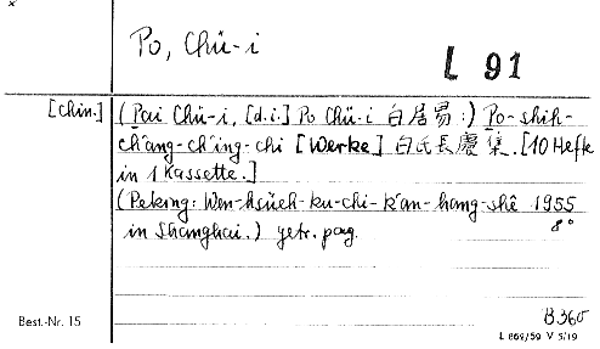 Po, Chü-i
L 91
[Chin.] (Pai Chü-i, [d.i.] Po Chü-i 白居易:) Po-shih-
ch'ang-ch'ing-chi [Werke] 白氏長慶集. [10 Hefte
in 1 Kassette.]
(Peking: Wen-hsüeh-ku-chi-k'an-hang-shê 1955
in Shanghai.) getr. pag. 8°
B 360
Best.-Nr. 15
L 869/59 V 5/19